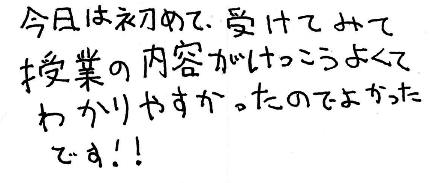 今日は初めて、受けてみて
授業の内容がけっこうよくて
わかりやすかったのでよかった
です!!